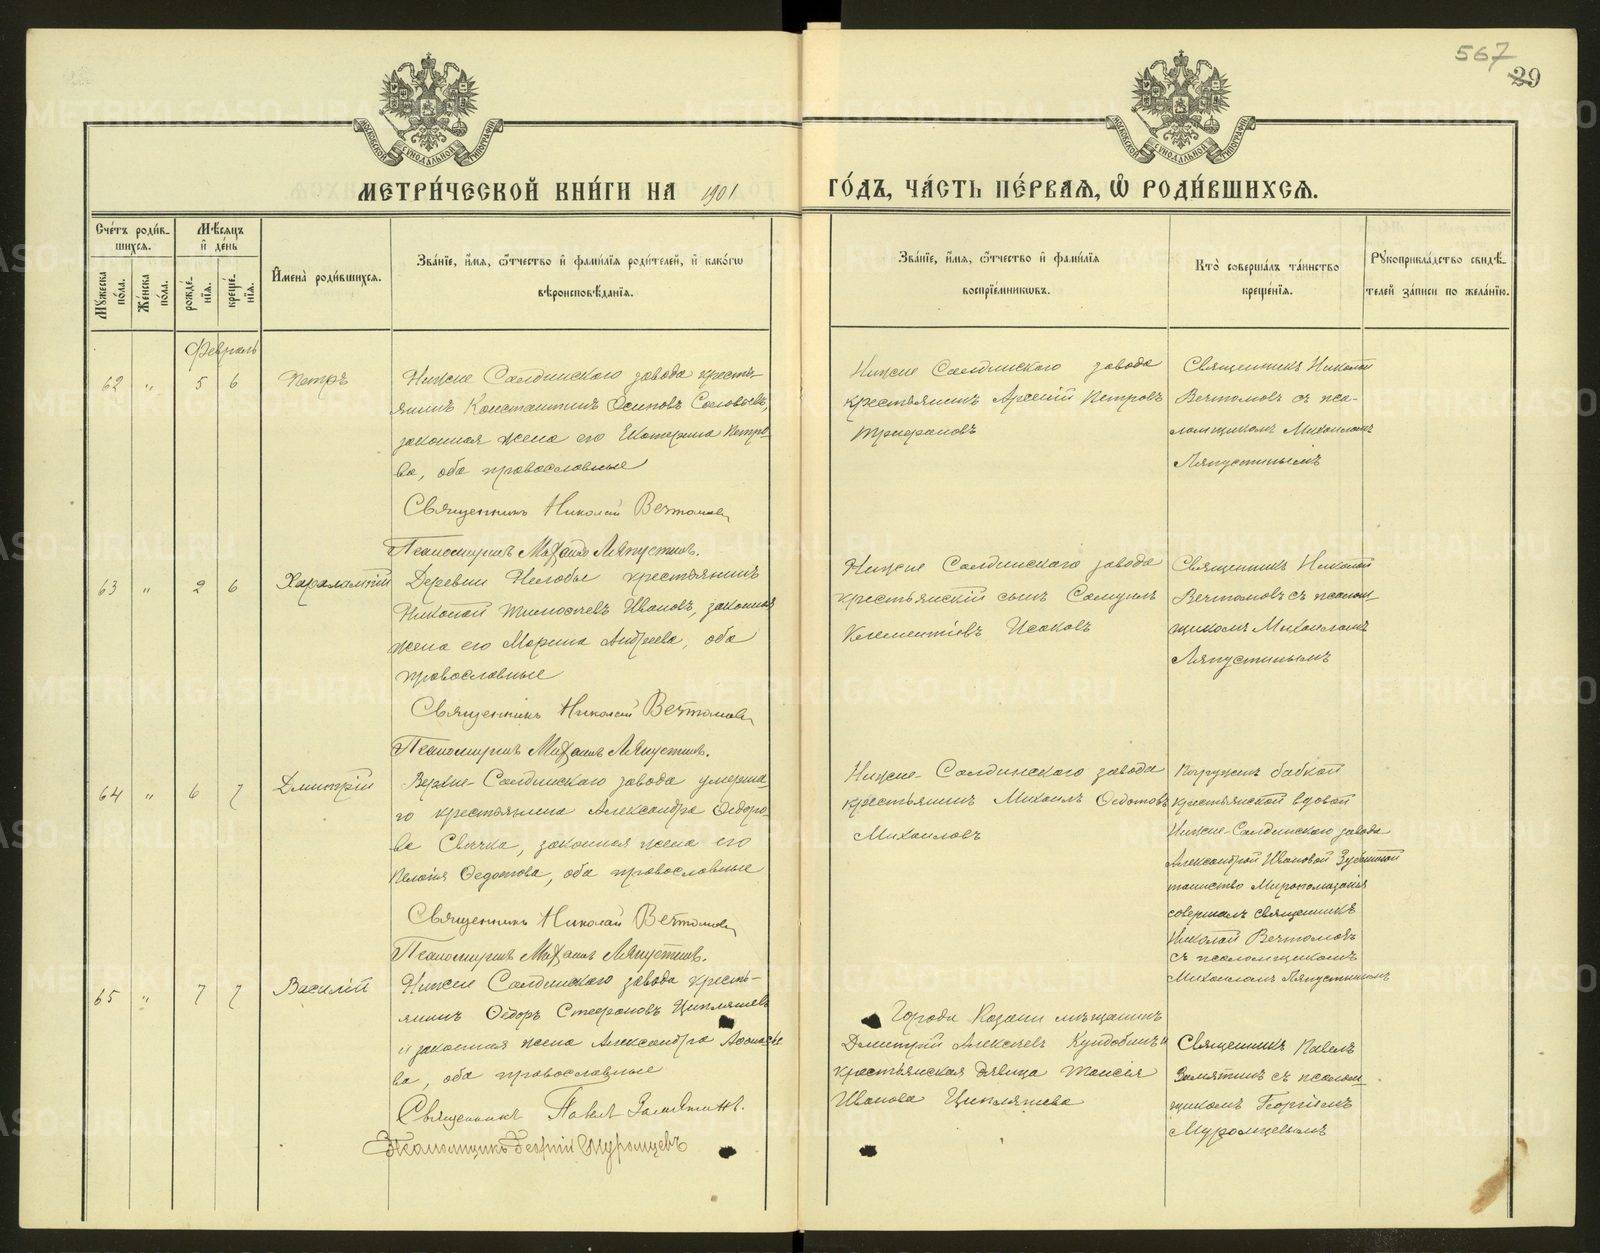 567
29
МЕТРИ́ЧЕСКОЙ КНИ́ГИ НА 1901
ГО́ДЪ, ЧА́СТЬ ПЕ́РВАѦ, Ѽ РОДИ́ВШИХСѦ.
Сче́тъ роди́в-
шихсѧ.
Мꙋ́жеска по́ла.
Же́нска по́ла.
Мѣ́сѧцъ
и҆ де́нь
рожде́нїѧ.
креще́нїѧ.
И҆мена̀ роди́вшихсѧ.
Зва́нїе, и҆́мѧ, ѻ҆́тчество и҆ фами́лїѧ роди́телей, и҆ како́гѡ
вѣроисповѣ́данїѧ.
Зва́нїе, и҆́мѧ, ѻ҆́тчество и҆ фами́лїѧ
воспрїе́мникѡвъ.
Кто̀ соверша́лъ та́инство
креще́нїѧ.
Рꙋкоприкла́дство свидѣ́-
телей за́писи по жела́нїю.
Февраль
62 „ 5 6
Петръ
Нижне Салдинскаго завода кресть-
янинъ Константинъ Осиповъ Соловьевъ,
законная жена его Екатерина Петро-
ва, оба православные
Священникъ Николай Вечтомовъ
Псаломщикъ Михаилъ Ляпустинъ.
Нижне Салдинскаго завода
крестьянинъ Арсений Петровъ
Трифановъ
Священникъ Николай
Вечтомовъ съ пса-
ломщикомъ Михаиломъ
Ляпустинымъ
63 „ 2 6
Харалампий
Деревни Нелобы крестьянинъ
Николай Тимофеевъ Ивановъ, законная
жена его Марина Андреева, оба
православные
Священникъ Николай Вечтомовъ
Псаломщикъ Михаилъ Ляпустинъ.
Нижне Салдинскаго завода
крестьянский сынъ Самуилъ
Клементиевъ Исаковъ
Священникъ Николай
Вечтомовъ съ псалом-
щикомъ Михаиломъ
Ляпустинымъ
64 „ 6 7
Дмитрий
Верхне-Салдинскаго завода умерша-
го крестьянина Александра Федоро-
ва Свичка, законная жена его
Пелагия Федотова, оба православные
Священникъ Николай Вечтомовъ
Псаломщикъ Михаилъ Ляпустинъ.
Нижне-Салдинскаго завода
крестьянинъ Михаилъ Федотовъ
Михаиловъ
Погруженъ бабкой
крестьянской вдовой
Нижне-Салдинскаго завода
Александрой Ивановой
таинство Миропомазания
совершалъ священникъ
Николай Вечтомовъ
съ псаломщикомъ
Михаиломъ Ляпустинымъ
65 „ 7 7
Василий
Нижне Салдинскаго завода кресть-
янинъ Федоръ Стефановъ Циплятевъ
и законная жена Александра Афонасье
ва, оба православные
Священникъ Павелъ Замятинъ.
Псаломщикъ Георгий Муромцевъ
Города Казани мещанинъ
Дмитрий Алексеевъ и
крестьянская девица Таисья
Иванова Циплятева
Священникъ Павелъ
Замятинъ съ псалом-
щикомъ Георгиемъ
Муромцевымъ